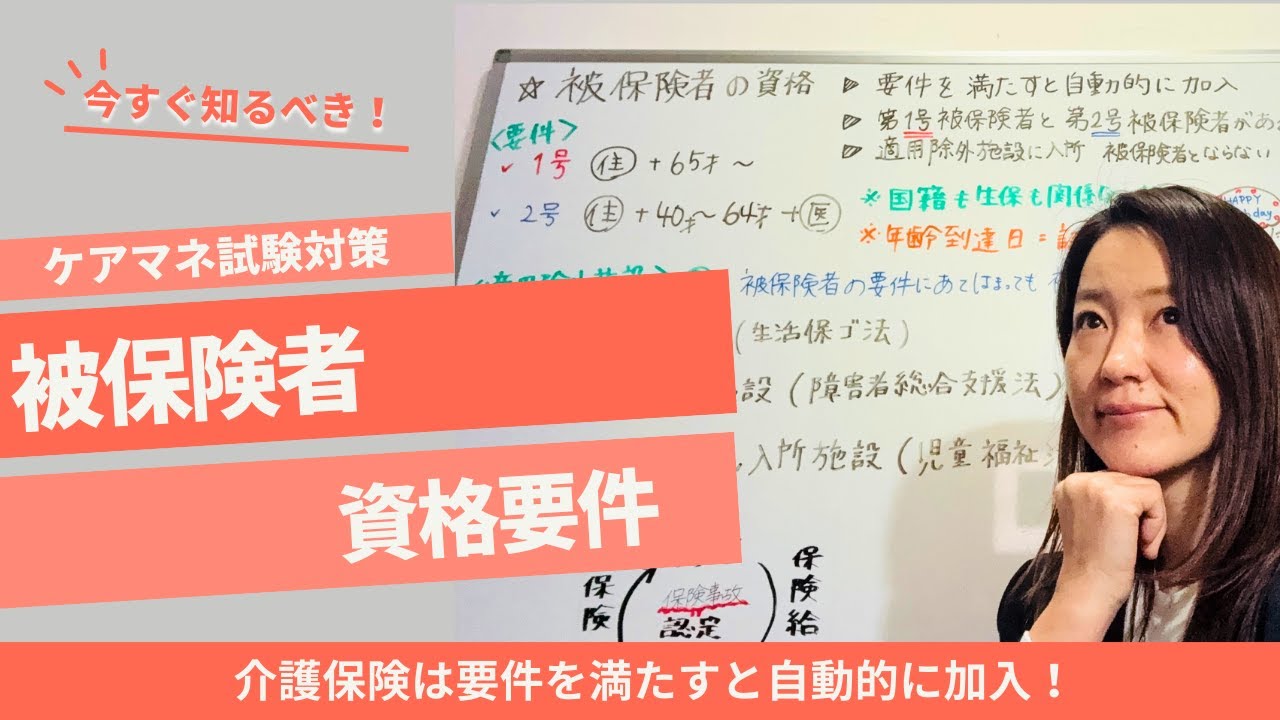 今すぐ知るべき！
ケアマネ試験対策
被保険者
資格要件
☆ 被保険者の資格
▷ 要件を満たすと自動的に加入
▷ 第1号被保険者と第2号被保険者があ
▷ 適用除外施設に入所 被保険者とならない
<要件>
✓ 1号 住 + 65才〜
✓ 2号 住 + 40才〜64才 + 医
※国籍も生保も関係
※年齢到達日＝
HAPPY
day
被保険者の要件にあてはまっても
(生活保ゴ法)
設(障害者総合支援法)
入所施設(児童福祉
保険
保険事故
認定
保険給
介護保険は要件を満たすと自動的に加入！